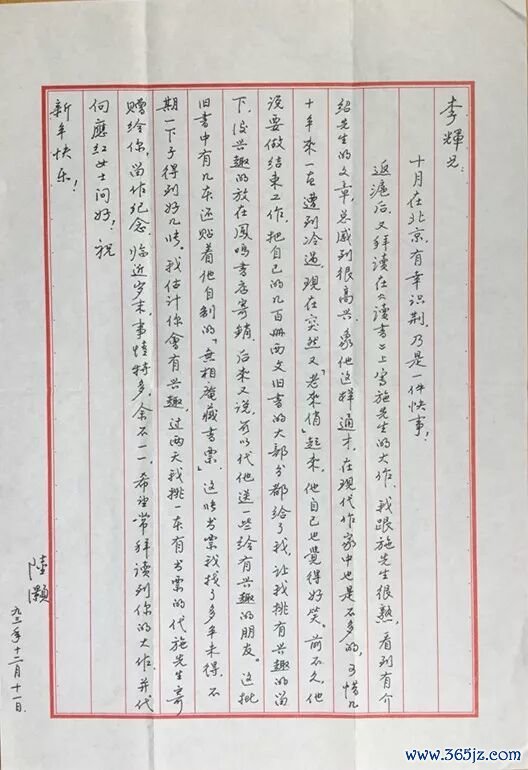 李輝兄:
十月在北京有幸识荆,乃是一件快事!
返滬后,又拜读在《读書》上写施先生的大作。我跟施先生很熟,看到有介
绍先生的文章,总感到很高兴。象他这样通才,在现代作家中也是不多的,可惜几
十年来一直遭到冷遇。现在突然又「老来俏」起来,他自己也覺得好笑。前不久,他
说要做结束工作,把自己的几百册西文旧書的大部分都给了我,让我挑有兴趣的留
下,没兴趣的放在鳳鸣書店寄銷。后来又说,可以代他送一些给有兴趣的朋友。这批
旧書中有几本还贴着他自制的「無相庵藏書票」,这帧书票我找了多年未得,不
期一下子得到好几帧。我估计你會有兴趣,过两天我挑一本有书票的代施先生寄
赠给你,留作纪念。临近岁末,事情特多,余不一一。希望常拜读到你的大作,并代
向應红女士问好!祝
新年快乐!
陸灝
九三年十二月十一日
www.365jz.com